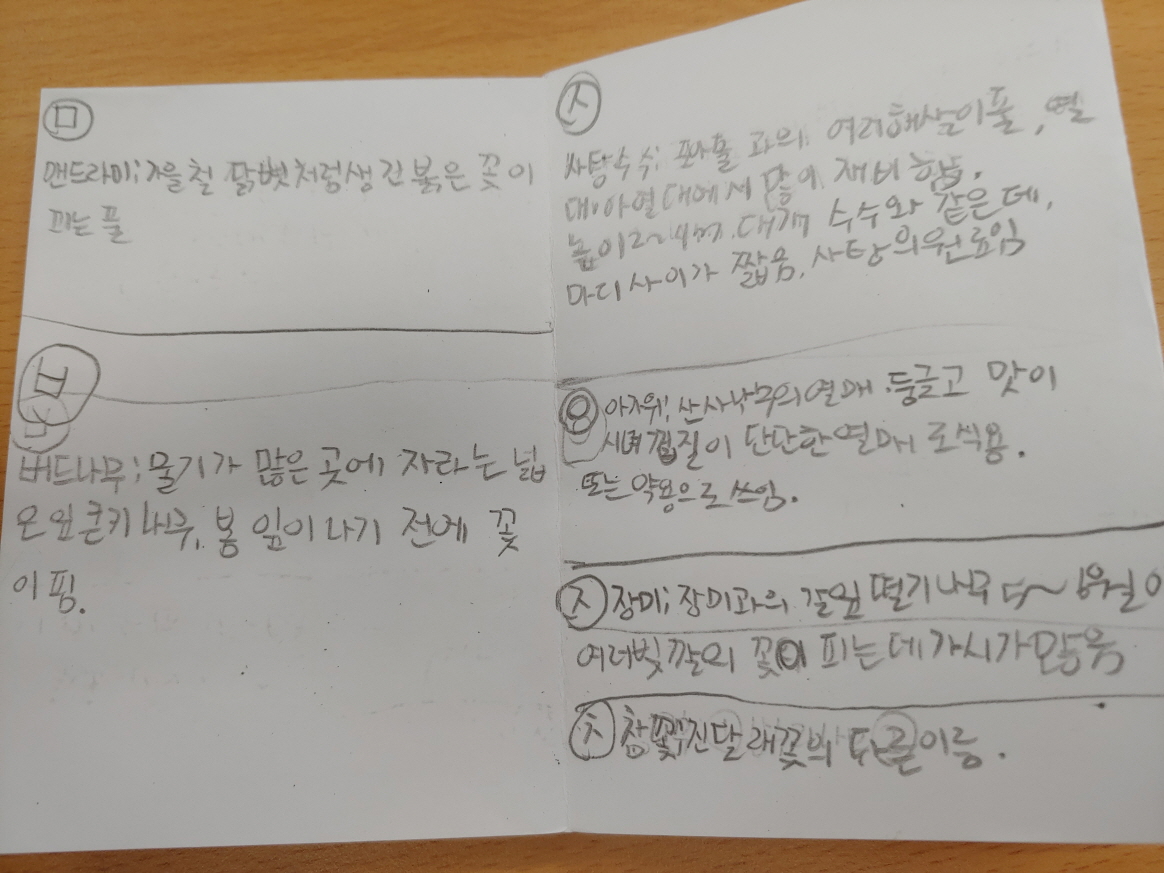 ㅁ
맨드라미; 가을철 닭볏처럼 생긴 붉은 꽃이
피는 풀
ㅂ
버드나무; 물기가 많은 곳에 자라는 넓
은 잎 큰키나무. 봄 잎이 나기 전에 꽃
이 핌.
ㅅ
사탕수수; 과의 여러해살이풀, 열
대·아열대에서 많이 재비함.
높이 2~4m. 대개 수수와 같은데,
마디 사이가 짧음, 사탕의 원료임
ㅇ 아가위; 산사나무의 열매. 둥글고 맛이
시며 껍질이 단단한 열매로 식용.
또는 약용으로 쓰임.
ㅈ 장미; 장미과의 갈잎 떨기나무 5~6월에
여러 빛깔의 꽃이 피는데 가시가 많음
ㅊ 참꽃; 진달래꽃의 다른 이름.